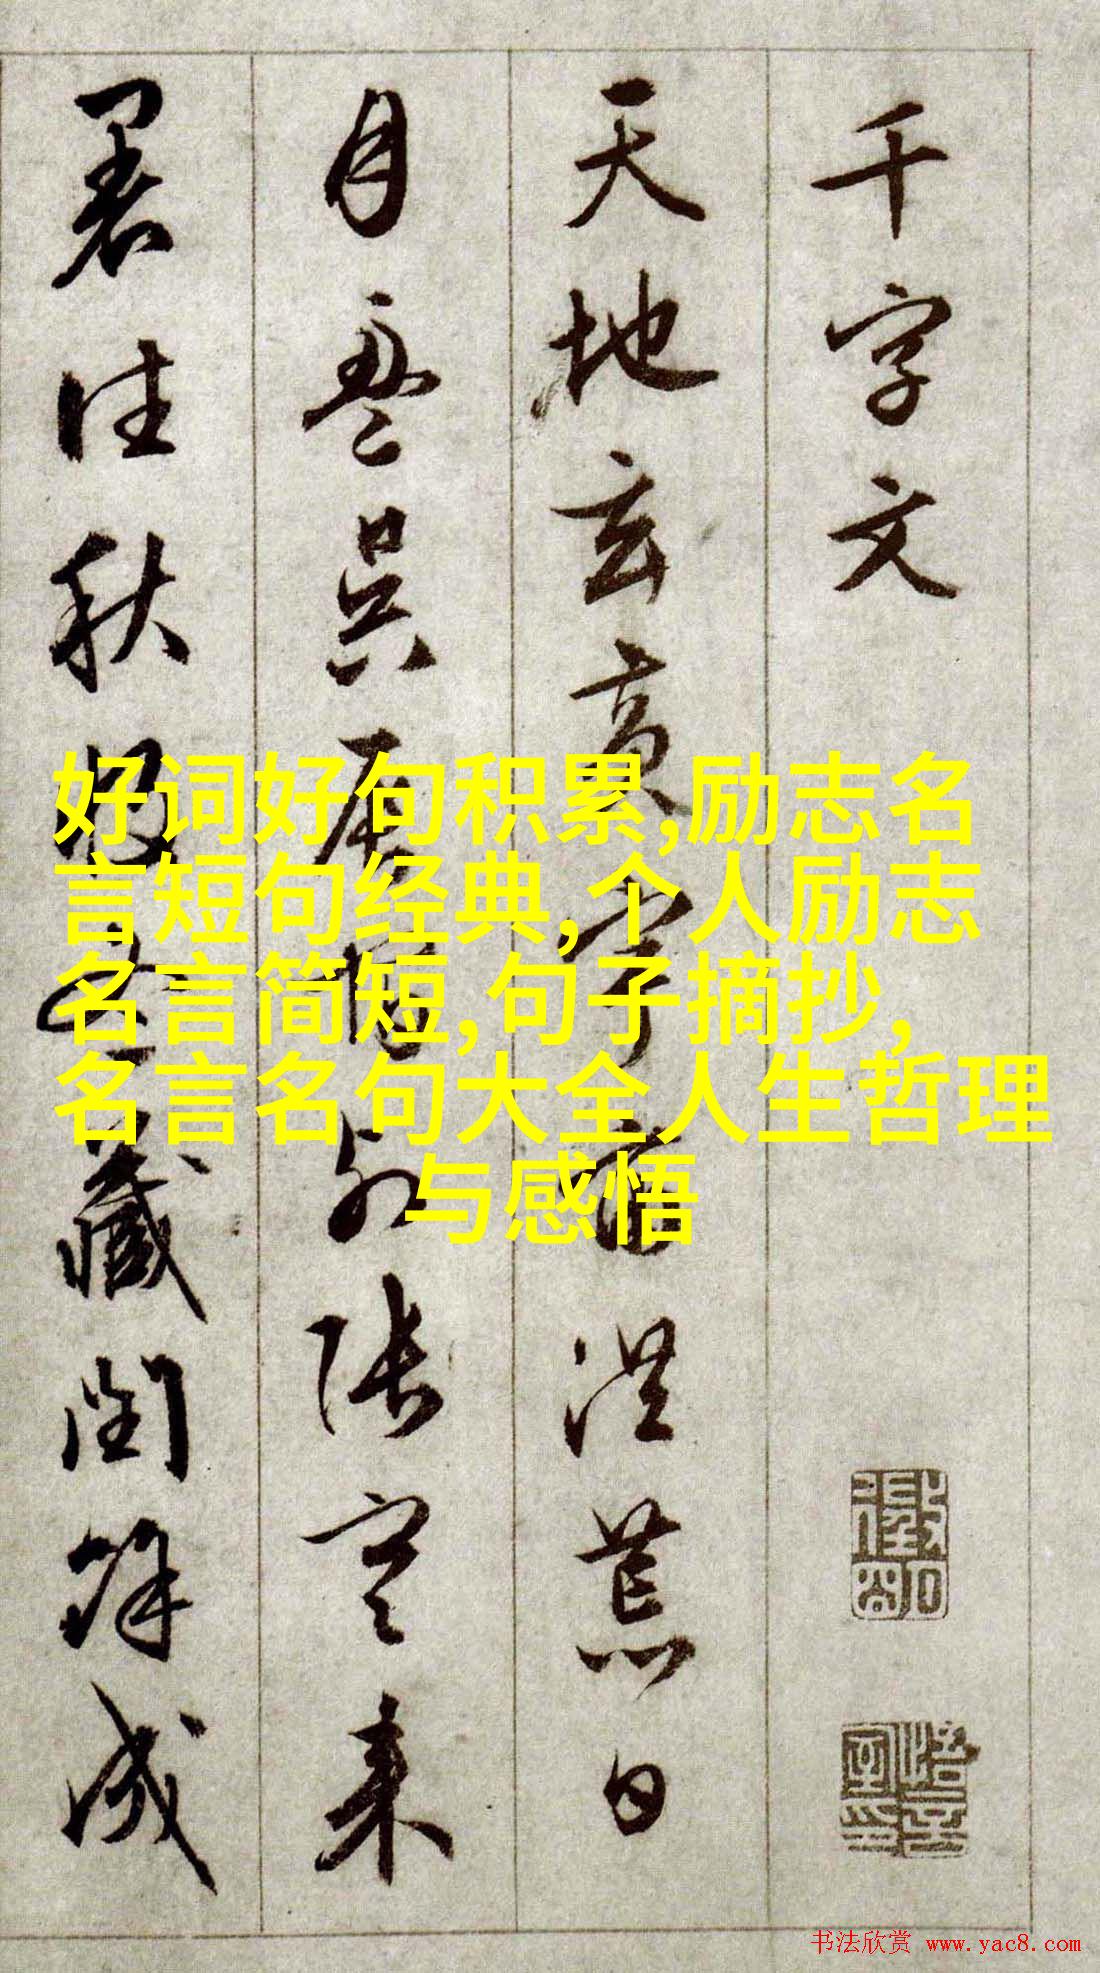 千字文
天地玄黃宇宙洪荒日
月盈昃辰宿列張寒來
暑往秋收冬藏閏餘成
好词好句积累,励志名
言短句经典,个人励志
名言简短,句子摘抄,
名言名句大全人生哲理
与感悟
书法欣赏 www.yac8.com